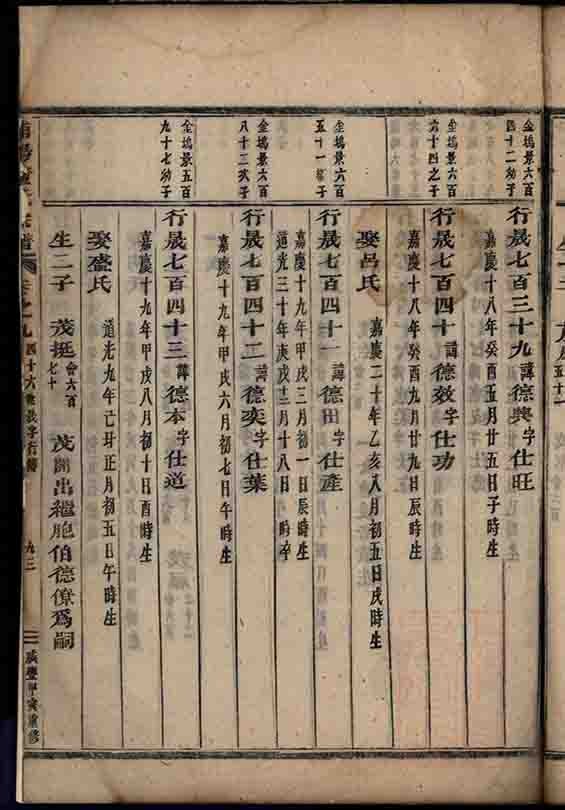 金塢景六百
四十二幼子
行晟七百三十九諱德興字仕旺
嘉慶十八年癸酉五月廿五日子時生
金塢景六百
六十四之子
行晟七百四十諱德效字仕功
嘉慶十八年癸酉九月廿九日辰時生
娶呂氏
嘉慶二十年乙亥八月初五日戌時生
金塢景六百
五十一
行晟七百四十一諱德田字仕產
嘉慶十九年甲戌三月初一日辰時生
道光三十年庚戌十二月十八日 時卒
金塢景六百
八十二次子
行晟七百四十二諱德奕字仕葉
嘉慶十九年甲戌六月初七日午時生
金塢景五百
九十七幼子
行晟七百四十三諱德本字仕道
嘉慶十九年甲戌八月初十日酉時生
娶盛氏
道光九年己丑正月初五日午時生
生二子 茂挺會六百七十 茂開出繼胞伯德僚爲嗣
卷之九
九三
咸豐甲寅重修